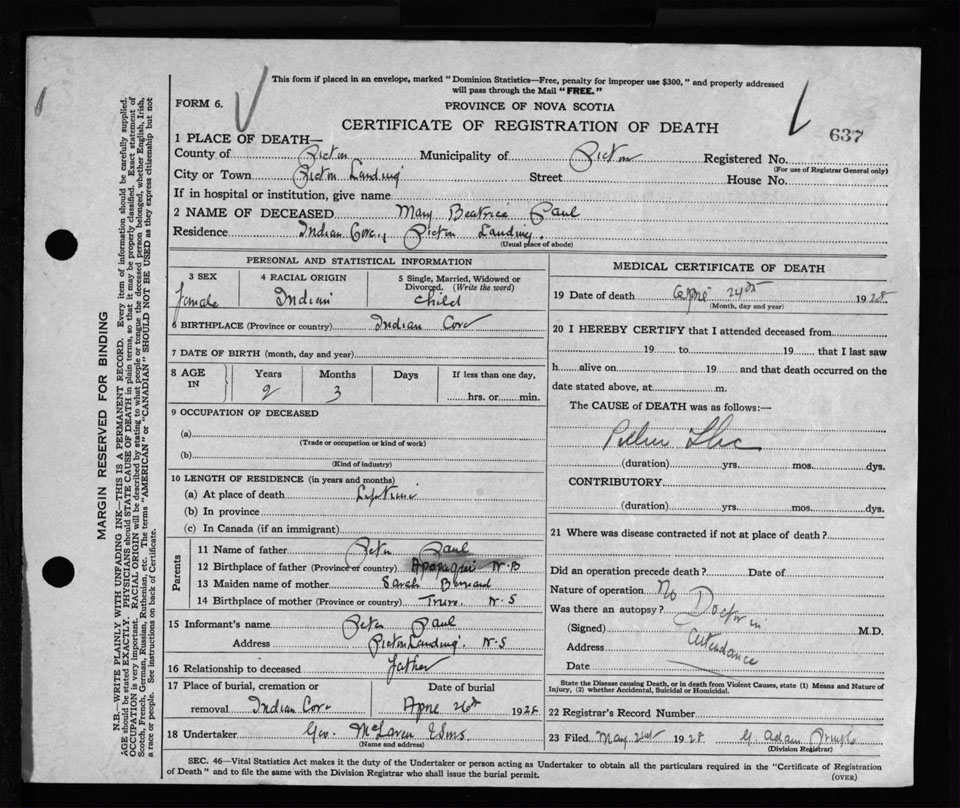 This form if placed in an envelope, marked "Dominion Statistics—Free, penalty for improper use $300," and properly addressed
will pass through the Mail "FREE."
FORM 6.
PROVINCE OF NOVA SCOTIA
CERTIFICATE OF REGISTRATION OF DEATH
637
1 PLACE OF DEATH—
County of Pictou Municipality of Pictou Registered No.
(For use of Registrar General only)
City or Town Pictou Landing Street House No.
If in hospital or institution, give name
2 NAME OF DECEASED Mary Beatrice Paul
Residence Indian Cove, Pictou Landing.
(Usual place of abode)
PERSONAL AND STATISTICAL INFORMATION
3 SEX 4 RACIAL ORIGIN 5 Single, Married, Widowed or
Divorced. (Write the word)
female Indian child
6 BIRTHPLACE (Province or country) Indian Cove
7 DATE OF BIRTH (month, day and year)
8 AGE IN Years Months Days If less than one day,
2 3 hrs. or min.
9 OCCUPATION OF DECEASED
(a)
(Trade or occupation or kind of work)
(b)
(Kind of industry)
10 LENGTH OF RESIDENCE (in years and months)
(a) At place of death Lifetime
(b) In province
(c) In Canada (if an immigrant)
Parents
11 Name of father Peter Paul
12 Birthplace of father (Province or country) N-B
13 Maiden name of mother Sarah Bernard
14 Birthplace of mother (Province or country) Truro N-S
15 Informant's name Peter Paul
Address Pictou Landing. N-S
16 Relationship to deceased father
17 Place of burial, cremation or Date of burial
removal Indian Cove April 26th 1928
18 Undertaker Geo. McLaren & Sons
(Name and address)
MEDICAL CERTIFICATE OF DEATH
19 Date of death April 24th 1928
(Month, day and year)
20 I HEREBY CERTIFY that I attended deceased from
19 to 19 that I last saw
h alive on 19 and that death occurred on the
date stated above, at m.
The CAUSE of DEATH was as follows:—
(duration) yrs. mos. dys.
CONTRIBUTORY
(duration) yrs. mos. dys.
21 Where was disease contracted if not at place of death?
Did an operation precede death? Date of
Nature of operation No
Was there an autopsy? Doctor in
(Signed) M.D.
Address attendance
Date
State the Disease causing Death, or in death from Violent Causes, state (1) Means and Nature of
Injury, (2) whether Accidental, Suicidal or Homicidal.
22 Registrar's Record Number
23 Filed May 21st 1928 G Adam
(Division Registrar)
SEC. 46—Vital Statistics Act makes it the duty of the Undertaker or person acting as Undertaker to obtain all the particulars required in the "Certificate of Registration
of Death" and to file the same with the Division Registrar who shall issue the burial permit.
(OVER)
MARGIN RESERVED FOR BINDING
N.B.—WRITE PLAINLY WITH UNFADING INK—THIS IS A PERMANENT RECORD. Every item of information should be carefully supplied.
AGE should be stated EXACTLY. PHYSICIANS should STATE CAUSE OF DEATH in plain terms, so that it may be properly classified. Exact statement of
OCCUPATION is very important. RACIAL ORIGIN will be described by stating to what people or tongue the deceased person belonged, whether English, Irish,
Scotch, French, German, Russian, Ruthenian, etc. The terms "AMERICAN" or "CANADIAN" SHOULD NOT BE USED as they express citizenship but not
a race or people. See instructions on back of Certificate.